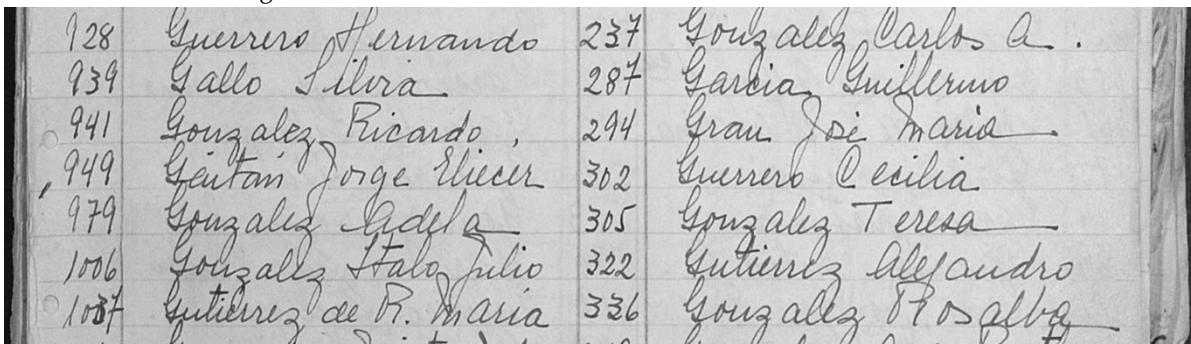 928 Guerrero Hernando 237 Gonzalez Carlos A.
939 Gallo Silvia 287 Garcia Guillermo
941 Gonzalez Ricardo, 294 Grau José Maria
949 Gaitan Jorge Eliecer 302 Guerrero Cecilia
979 Gonzalez Adela 305 Gonzalez Teresa
1006 Gonzalez Italo Julio 322 Gutierrez Alejandro
1037 Gutierrez de R. Maria 336 Gonzalez Rosalba